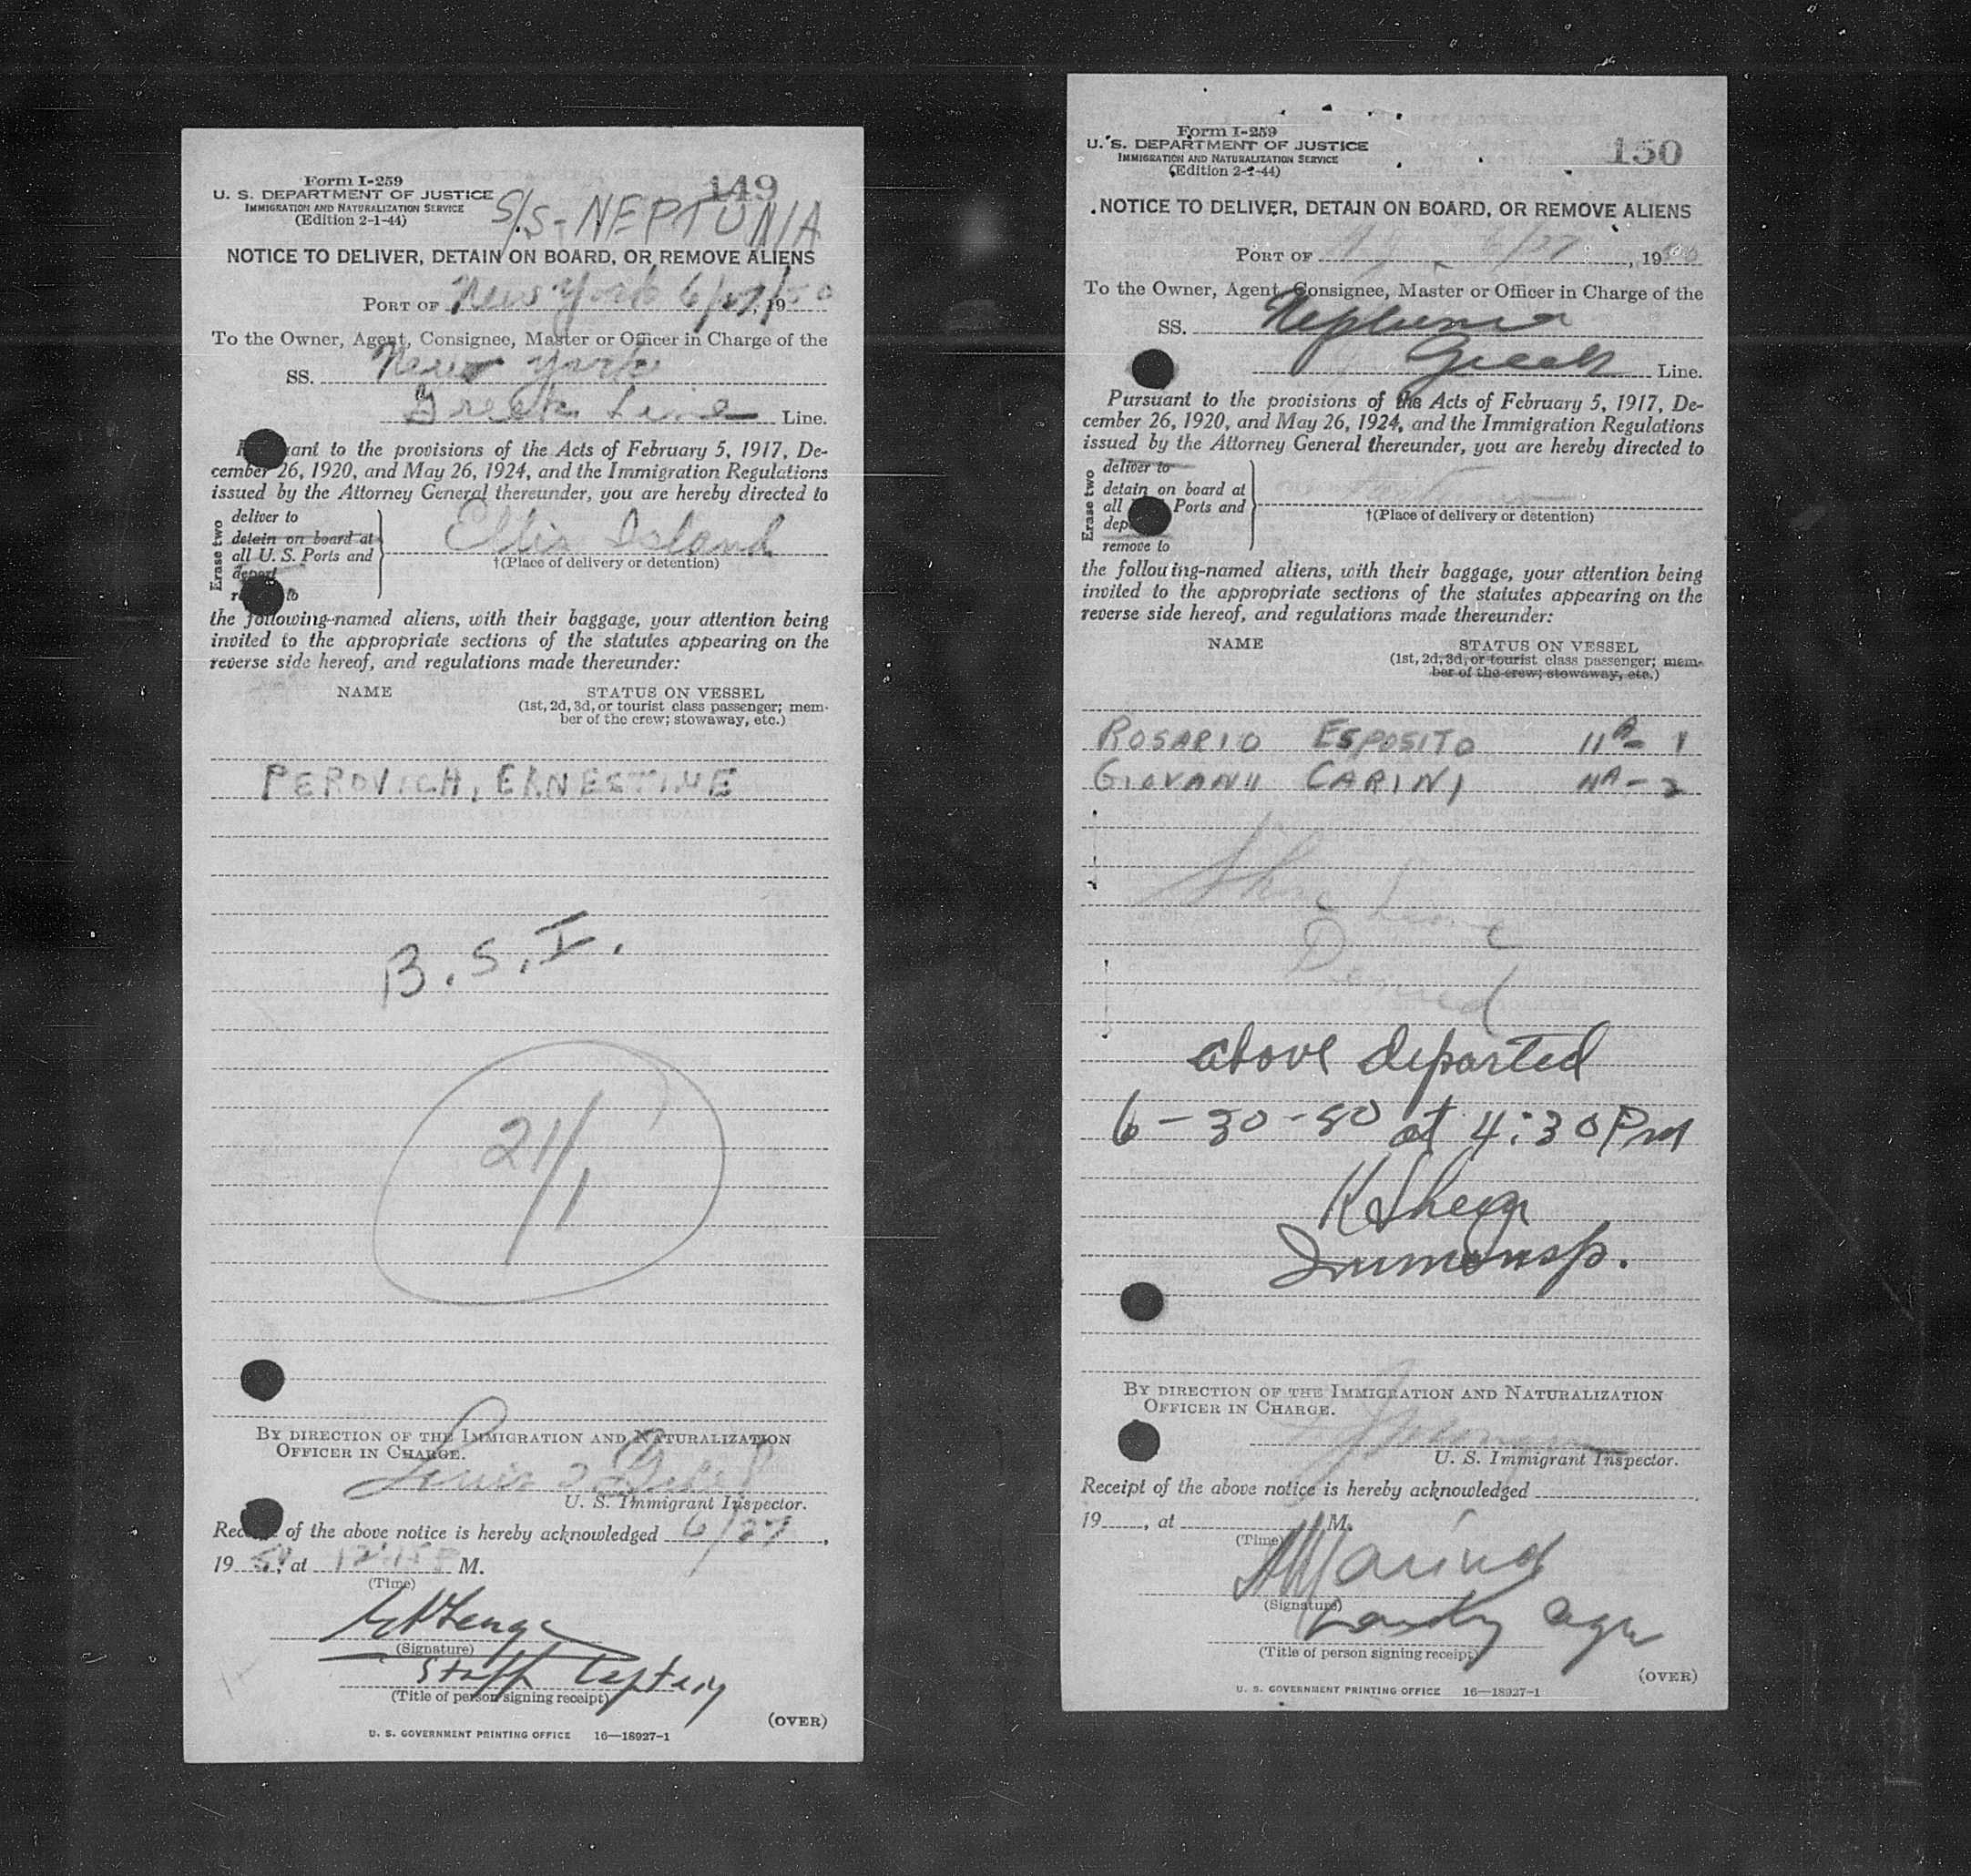 149
Form I-259
U. S. DEPARTMENT OF JUSTICE
IMMIGRATION AND NATURALIZATION SERVICE
(Edition 2-1-44)
S/S-NEPTUNIA
NOTICE TO DELIVER, DETAIN ON BOARD, OR REMOVE ALIENS
PORT OF New York 6/27, 1950
To the Owner, Agent, Consignee, Master or Officer in Charge of the
SS. New York
Greek Line Line.
ant to the provisions of the Acts of February 5, 1917, De-
cember 26, 1920, and May 26, 1924, and the Immigration Regulations
issued by the Attorney General thereunder, you are hereby directed to
Erase two
deliver to
detain on board at
all U. S. Ports and
deport
to
Ellis Island
†(Place of delivery or detention)
the following-named aliens, with their baggage, your attention being
invited to the appropriate sections of the statutes appearing on the
reverse side hereof, and regulations made thereunder:
NAME STATUS ON VESSEL
(1st, 2d, 3d, or tourist class passenger; mem-
ber of the crew; stowaway, etc.)
PEROVICH, ERNESTINE
B.S.I.
21/1
BY DIRECTION OF THE IMMIGRATION AND NATURALIZATION
OFFICER IN CHARGE.
U. S. Immigrant Inspector.
of the above notice is hereby acknowledged 6/27,
1950, at 12:15 P M.
(Time)
(Signature)
Staff
(Title of person signing receipt)
(OVER)
U. S. GOVERNMENT PRINTING OFFICE 16—18927-1
150
Form I-259
U. S. DEPARTMENT OF JUSTICE
IMMIGRATION AND NATURALIZATION SERVICE
(Edition 2-1-44)
NOTICE TO DELIVER, DETAIN ON BOARD, OR REMOVE ALIENS
PORT OF NY 6/27, 1950
To the Owner, Agent, Consignee, Master or Officer in Charge of the
SS. Neptunia
Greek Line.
Pursuant to the provisions of the Acts of February 5, 1917, De-
cember 26, 1920, and May 26, 1924, and the Immigration Regulations
issued by the Attorney General thereunder, you are hereby directed to
Erase two
deliver to
detain on board at
all Ports and
remove to
†(Place of delivery or detention)
the following-named aliens, with their baggage, your attention being
invited to the appropriate sections of the statutes appearing on the
reverse side hereof, and regulations made thereunder:
NAME STATUS ON VESSEL
(1st, 2d, 3d, or tourist class passenger; mem-
ber of the crew; stowaway, etc.)
ROSARIO ESPOSITO 11A- 1
GIOVANII CARINI 11A-2
Shore Leave
Denied
above departed
6-30-50 at 4:30 PM
K Shea
Immi Insp.
BY DIRECTION OF THE IMMIGRATION AND NATURALIZATION
OFFICER IN CHARGE.
U. S. Immigrant Inspector.
Receipt of the above notice is hereby acknowledged
19 , at M.
(Time)
(Signature)
(Title of person signing receipt)
(OVER)
U. S. GOVERNMENT PRINTING OFFICE 16—18927-1